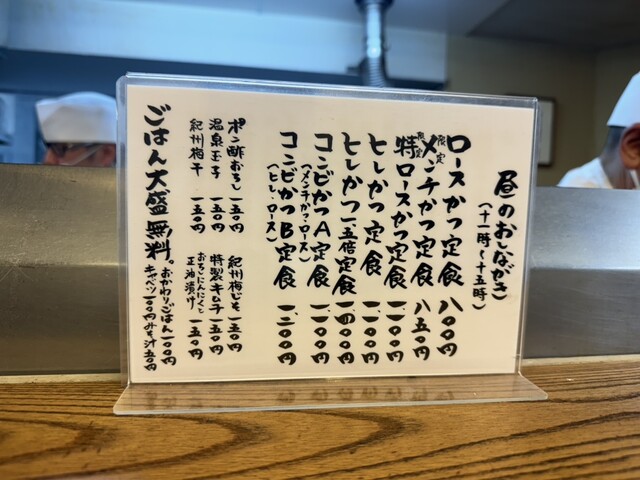 昼のおしながき
(十一時〜十五時)
ロースかつ定食 八〇〇円
限定 メンチかつ定食 八五〇円
限定 特ロースかつ定食 一、二〇〇円
ヒレかつ定食 一、一〇〇円
ヒレかつ一、五倍定食 一、四〇〇円
コンビかつA定食 一、一〇〇円
(メンチかつ・ロース)
コンビかつB定食 一、二〇〇円
(ヒレ・ロース)
ポン酢おろし 一五〇円
温泉玉子 一五〇円
紀州梅干 一五〇円
紀州梅じそ 一五〇円
特製キムチ 一五〇円
おろしにんにくと
正油漬け 一五〇円
ごはん大盛無料。
おかわりごはん一〇〇円
キャベツ一〇〇円みそ汁五〇円